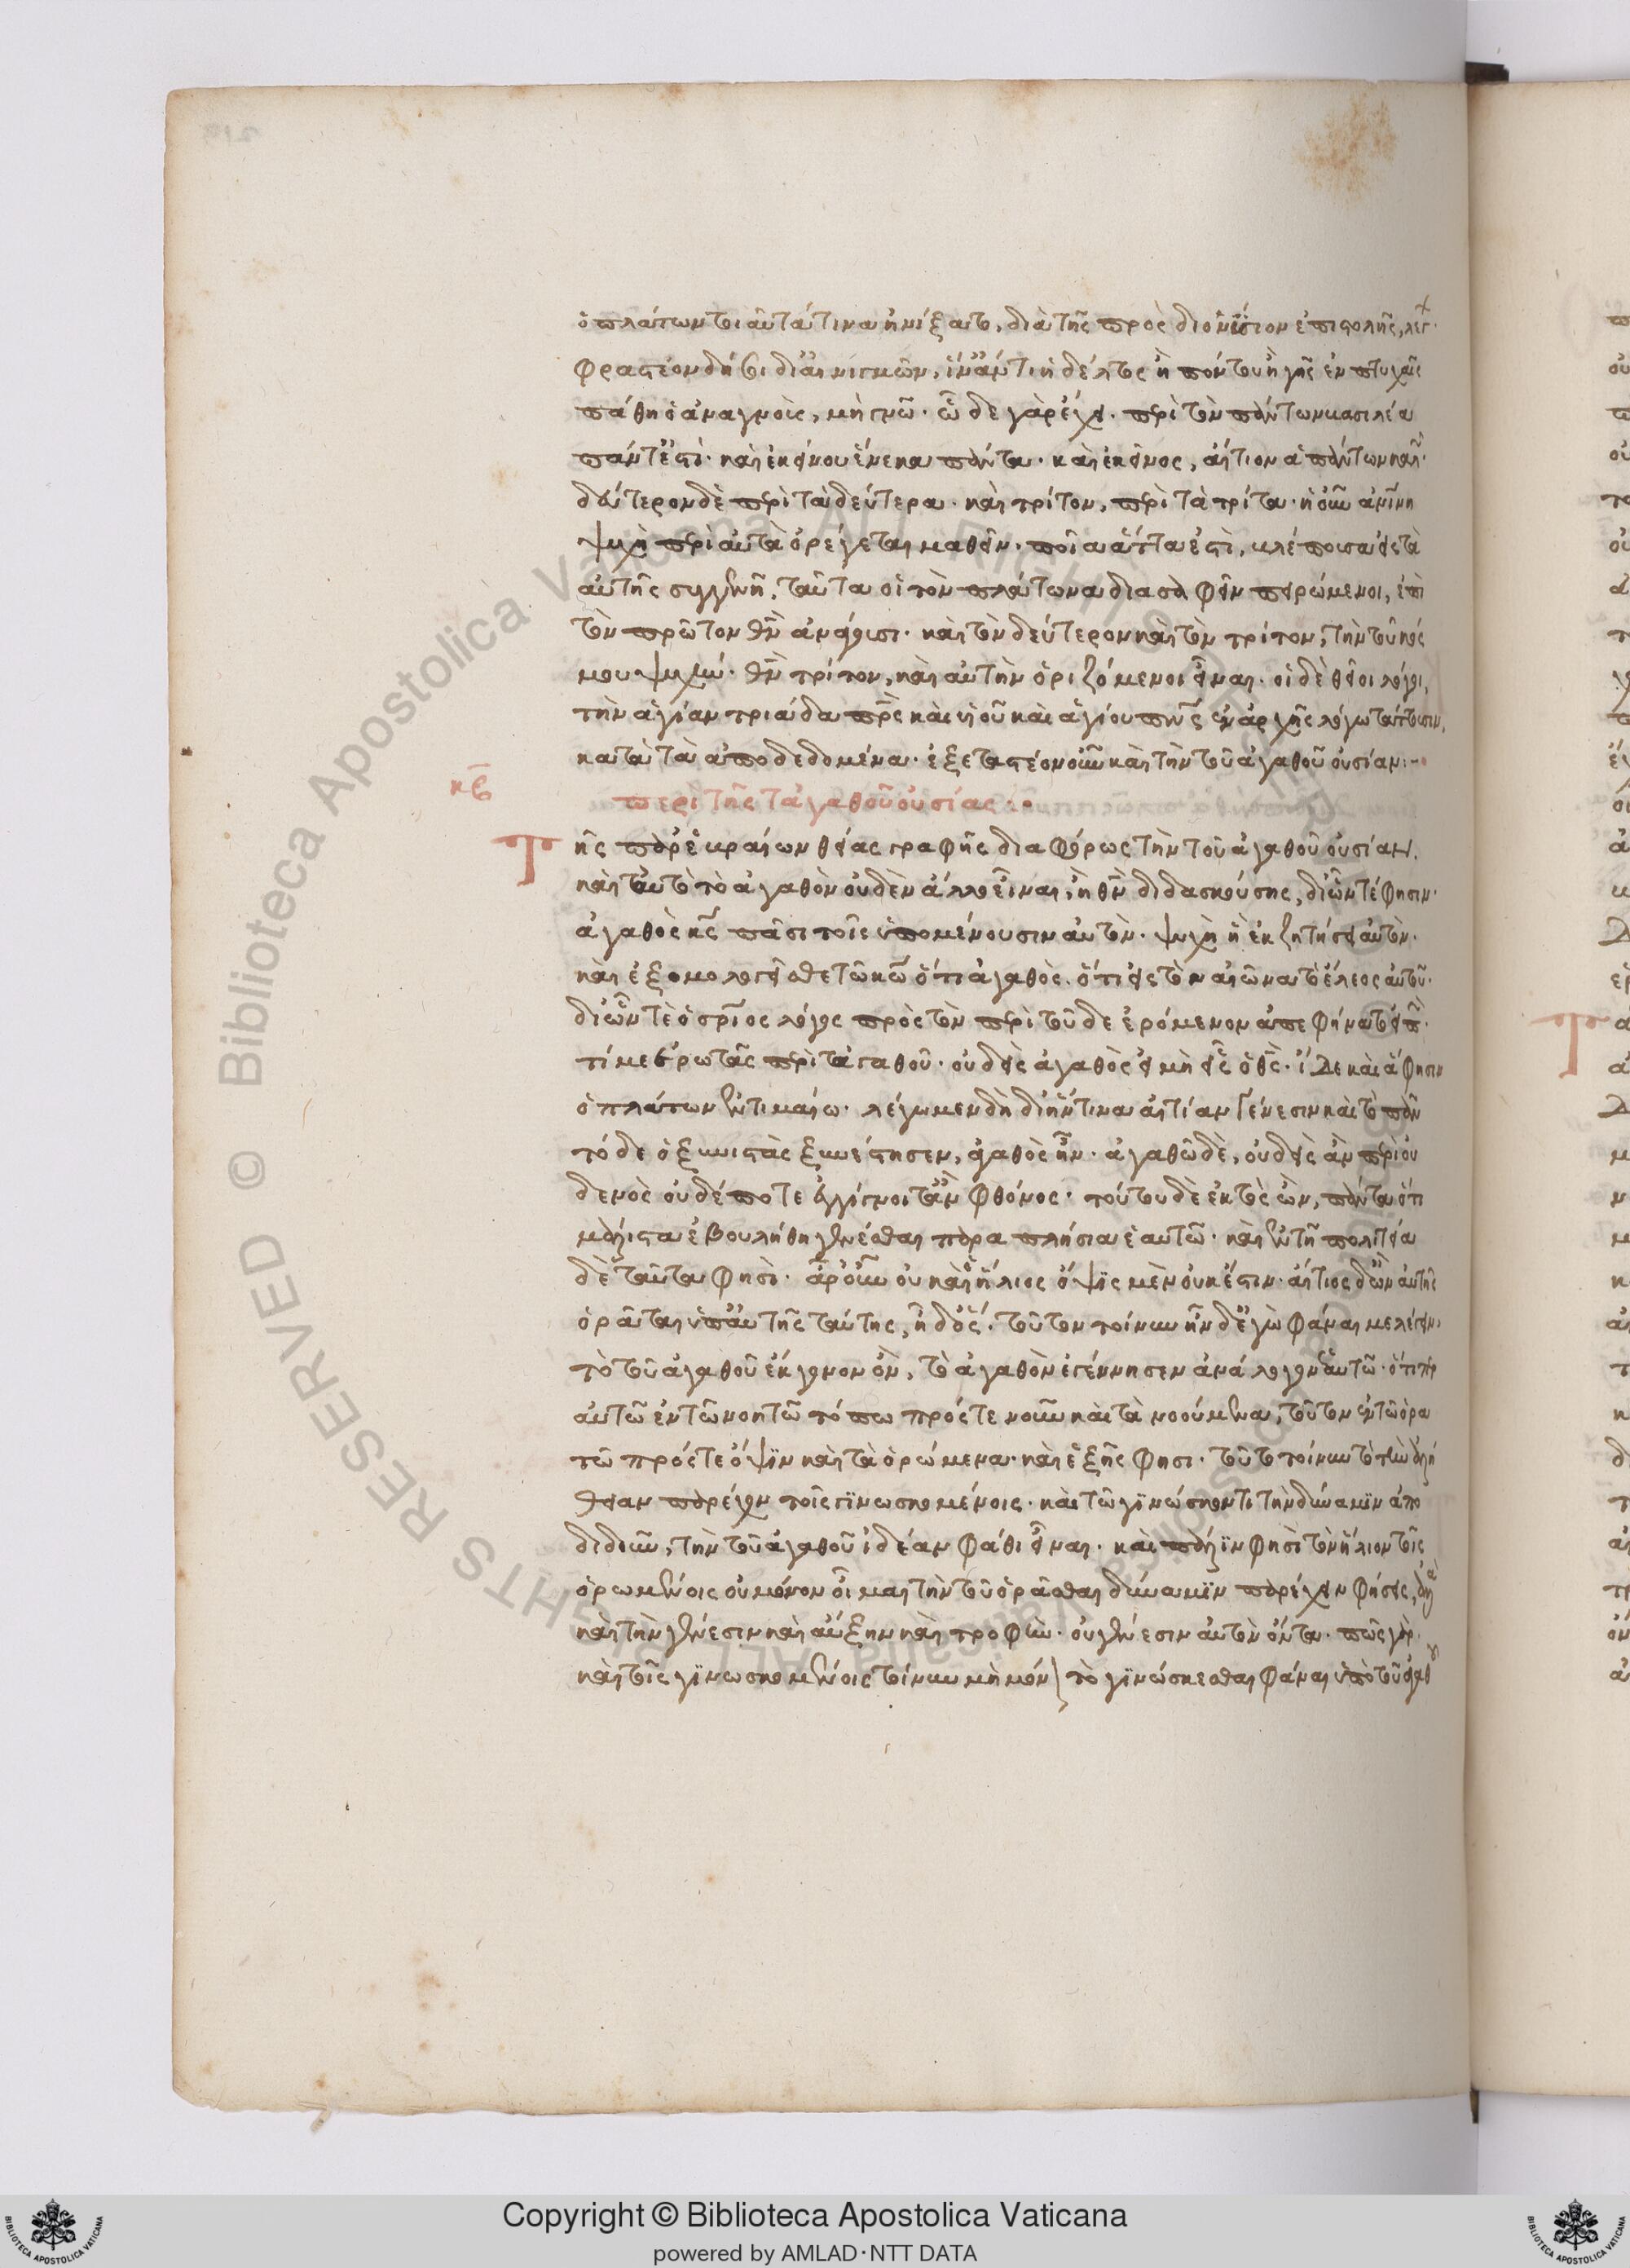 ὁ πλάτων τοιαῦτά τινα ᾐνίξατο, διὰ τῆς πρὸς διονύσιον ἐπιστολῆς, λέγ·
φραστέον δή σοι δι' αἰνιγμῶν, ἵν' ἄν τι ἡ δέλτος ἢ πόντου ἢ γῆς ἐν πτυχαῖς
πάθη ὁ ἀναγνοὺς, μὴ γνῶ· ὧδε γὰρ ἔχει· περὶ τὸν πάντων βασιλέα
πάντ' ἐστί· καὶ ἐκείνου ἕνεκα πάντα· καὶ ἐκεῖνος, αἴτιον ἁπάντων καλῶν·
δεύτερον δὲ περὶ τὰ δεύτερα· καὶ τρίτον, περὶ τὰ τρίτα· ἡ οὖν ἀνίνη
ψυχὴ περὶ αὐτὰ ὀρέγεται μαθεῖν· ποῖα ἄττα ἐστὶ, βλέπουσα εἰς τὰ
αὐτῆς συγγενῆ, ταῦτα οἱ τὸν πλάτωνα διασαφεῖν πειρώμενοι, ἐπὶ
τὸν πρῶτον θν ἀνάγουσι· καὶ τὸν δεύτερον καὶ τὸν τρίτον, τὴν τοῦ κόσ
μου ψυχὴν· θν τρίτον, καὶ αὐτὴν ὁριζόμενοι εἶναι· οἱ δὲ θεῖοι λόγοι,
τὴν ἁγίαν τριάδα πρς καὶ υἱοῦ καὶ ἁγίου πνς ἐν ἀρχῆς λόγω τάττουσιν,
κατὰ τὰ ἀποδεδομένα· ἐξεταστέον οὖν καὶ τὴν τοῦ ἀγαθοῦ οὐσίαν:-
περὶ τῆς τἀγαθοῦ οὐσίας:•
Τῆς παρ' ἑβραίων θείας γραφῆς διαφόρως τὴν τοῦ ἀγαθοῦ οὐσίαν,
καὶ ταὐτὸ τὸ ἀγαθὸν οὐδὲν ἄλλο εἶναι, ἢ θν διδασκούσης, δι' ὧν τέ φησιν·
ἀγαθὸς κς πᾶσι τοῖς ὑπομένουσιν αὐτὸν· ψυχὴ ἣ ἐκζητήσει αὐτὸν·
καὶ ἐξομολογεῖσθε τῶ κω ὅτι ἀγαθὸς· ὅτι εἰς τὸν αἰῶνα τὸ ἔλεος αὐτοῦ·
δι' ὧν τὲ ὁ σριος λόγος πρὸς τὸν περὶ τοῦδε ἐρόμενον ἀπεφήνατο εἰπὼν·
τί με ἐρωτᾶς περὶ τἀγαθοῦ· οὐδεὶς ἀγαθὸς εἰ μὴ εἷς ὁ θς· ἴδε καὶ ἅ φησιν
ὁ πλάτων ἐν τιμαίω· λέγωμεν δὴ δι' ἥντινα αἰτίαν γένεσιν καὶ τὸ πᾶν
τόδε ὁ ξυνιστὰς ξυνέστησεν, ἀγαθὸς ἦν· ἀγαθῶ δὲ, οὐδεὶς ἂν περὶ οὐ
δενὸς οὐδέποτε ἐγγίγνοιτ' ἂν φθόνος· τούτου δὲ ἐκτὸς ὢν, πάντα ὅτι
μάλιστα ἐβουλήθη γενέσθαι παραπλήσια ἑαυτῶ· καὶ ἐν τῆ πολιτεία
δὲ ταῦτα φησὶ· ἆρ' οὖν οὐ καὶ ὁ ἥλιος ὄψις μὲν οὐκ ἔστιν· αἴτιος δ' ὢν αὐτῆς
ὁρᾶται ὑπ' αὐτῆς ταύτης, ἦ δ' ὅς· τοῦτον τοίνυν ἦν δ' ἐγὼ φάναι με λέγειν,
τὸ τοῦ ἀγαθοῦ ἔκγονον ὃν, τὸ ἀγαθὸν ἐγέννησεν ἀνάλογον ἑαυτῶ· ὅτι περ
αὐτῶ ἐν τῶ νοητῶ τόπω πρός τε νοῦν καὶ τὰ νοούμενα, τοῦτον ἐν τῶ ὁρα
τῶ πρός τε ὄψιν καὶ τὰ ὁρώμενα· καὶ ἑξῆς φησι· τοῦτο τοίνυν τὸ τὴν ἀλή
θειαν παρέχον τοῖς γινωσκομένοις· καὶ τῶ γινώσκοντι τὴν δύναμιν ἀπο
διδοῦν, τὴν τοῦ ἀγαθοῦ ἰδέαν φάθι εἶναι· καὶ πάλιν φησὶ τὸν ἥλιον τοῖς
ὁρωμένοις οὐ μόνον οἶμαι τὴν τοῦ ὁρᾶσθαι δύναμιν παρέχειν φήσεις, ἀλλὰ
καὶ τὴν γένεσιν καὶ αὔξην καὶ τροφὴν· οὐ γένεσιν αὐτὸν ὄντα· πῶς γὰρ·
καὶ τοῖς γινωσκομένοις τοίνυν μὴ μόνον τὸ γινώσκεσθαι φάναι ὑπὸ τοῦ ἀγαθοῦ
Copyright © Biblioteca Apostolica Vaticana
powered by AMLAD·NTT DATA